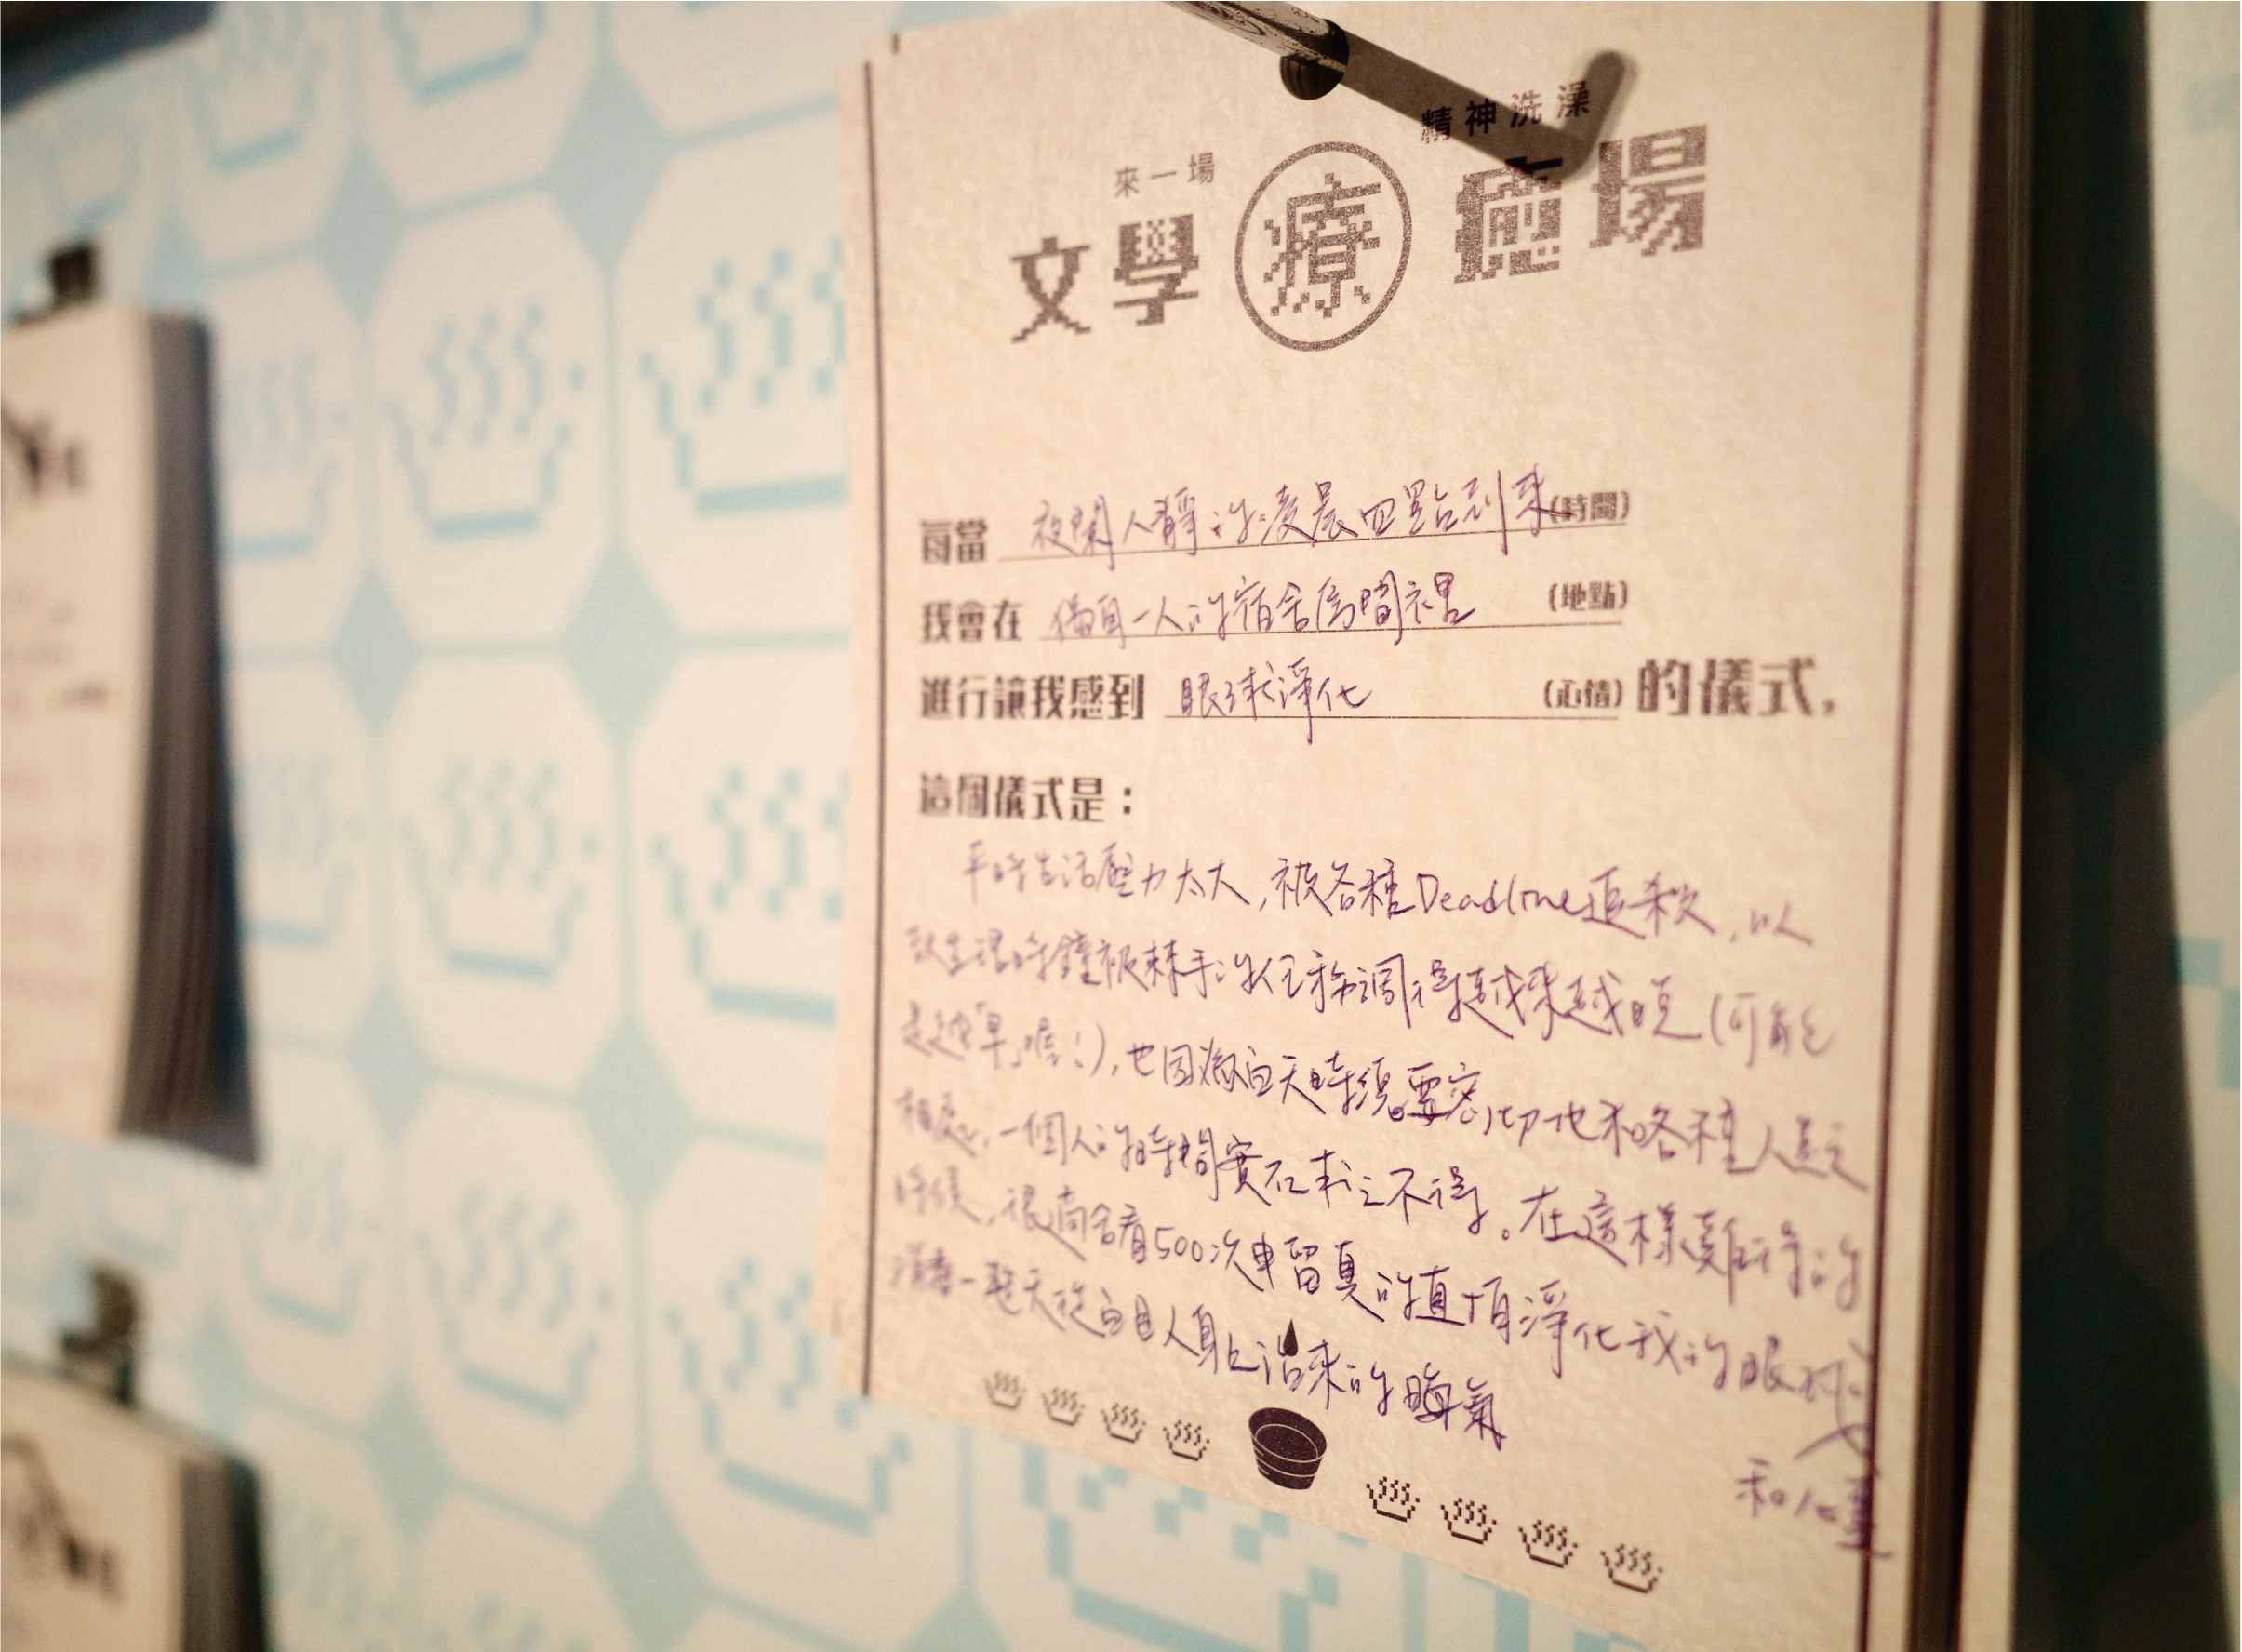 來一場
精神洗澡
文學療癒場
每當 夜闌人靜的凌晨四點到來 (時間)
我會在 獨自一人的宿舍房間裡 (地點)
進行讓我感到 眼球淨化 (心情) 的儀式,
這個儀式是:
平時生活壓力太大,被各種Deadline追殺,以
致生理時鐘被棘手的任務調得越來越晚(可能
是超「早」喔!),也因為白天時須要密切地和各種人類
相處,一個人的時間實在求之不得。在這樣難得的
時候,很適合看500次申留真的直拍淨化我的眼球,
一整天從白目人身上沾來的晦氣